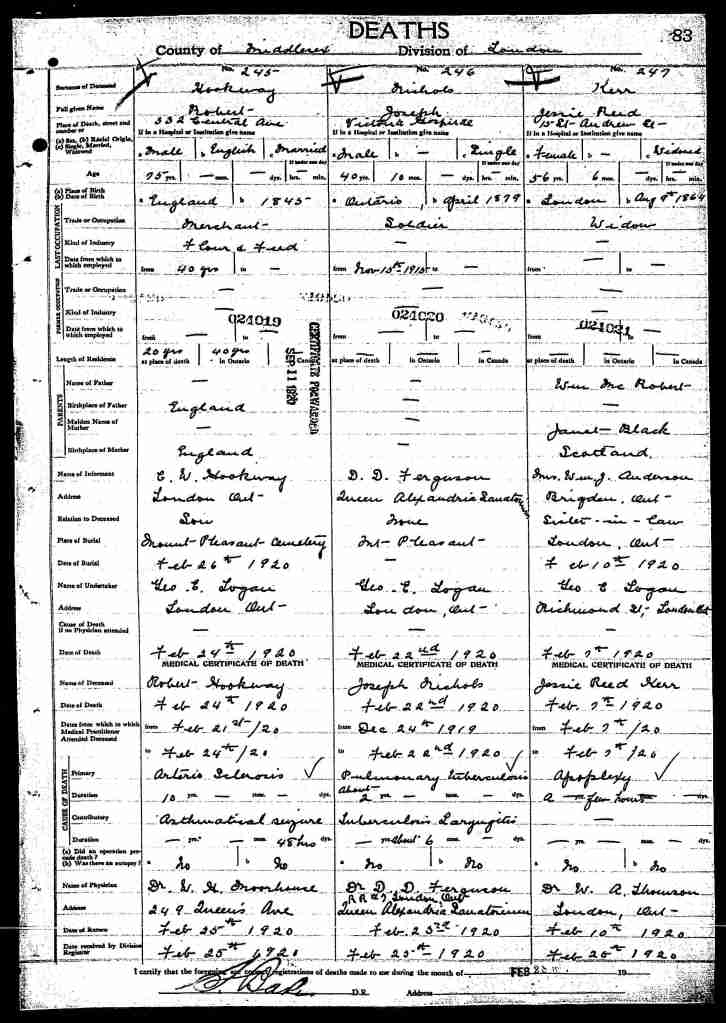 DEATHS
83
County of Middlesex Division of London
No. 245 No. 246 No. 247
Surname of Deceased Hookway Nichols Kerr
Full given Name Robert Joseph Jessie Reed
Place of Death, street and number or 332 Central Ave Victoria Hospital St. Andrew St
If in a Hospital or Institution give name If in a Hospital or Institution give name If in a Hospital or Institution give name
(a) Sex, (b) Racial Origin, (c) Single, Married, Widowed a Male b English c Married a Male b — c Single a Female b c Widowed
If under one day If under one day If under one day
Age 75 yrs. — mos. — dys. hrs. — min. 40 yrs. 10 mos. — dys. hrs. — min. 56 yrs. 6 mos. — dys. hrs. — min.
(a) Place of Birth (b) Date of Birth a England b 1845 a Ontario b April 1879 a London b Aug 9th 1864
LAST OCCUPATION
Trade or Occupation Merchant Soldier Widow
Kind of Industry Flour & Feed — —
Date from which to which employed from 40 yrs to — from Nov 15th 1915 to — from — to —
FORMER OCCUPATION
Trade or Occupation — — —
Kind of Industry — — —
024019 024020 024021
Date from which to which employed from — to — from — to — from — to —
Length of Residence 20 yrs 40 yrs
at place of death in Ontario in Canada at place of death in Ontario in Canada at place of death in Ontario in Canada
SEP. 11 1920
CERTIFICATE FORWARDED
PARENTS
Name of Father — — Wm Mc Robert
Birthplace of Father England — —
Maiden Name of Mother — — Janet Black
Birthplace of Mother England — Scotland
Name of Informant C. W. Hookway D. D. Ferguson Mrs. Wm. J. Anderson
Address London Ont Queen Alexandria Sanatorium Brigden, Ont
Relation to Deceased Son None Sister-in-law
Place of Burial Mount Pleasant Cemetery Mt Pleasant London, Ont
Date of Burial Feb 26th 1920 — Feb 10th 1920
Name of Undertaker Geo. E. Logan Geo. E. Logan Geo E Logan
Address London Ont London, Ont Richmond St, London Ont
Cause of Death if no Physician attended — — —
Date of Death Feb 24th 1920 Feb 22nd 1920 Feb 7th 1920
MEDICAL CERTIFICATE OF DEATH MEDICAL CERTIFICATE OF DEATH MEDICAL CERTIFICATE OF DEATH
Name of Deceased Robert Hookway Joseph Nichols Jessie Reed Kerr
Date of Death Feb 24th 1920 Feb 22nd 1920 Feb. 7th 1920
Dates from which to which Medical Practitioner Attended Deceased from Feb 21st/20 from Dec 24th 1919 from Feb 7th/20
to Feb 24th/20 to Feb 22nd 1920 to Feb 7th/20
CAUSE OF DEATH
Primary Arterio Sclerosis Pulmonary Tuberculosis Apoplexy
Duration 10 yrs. — mos. — dys. About 2 yrs. — mos. — dys. A few hours
Contributory Asthmatical seizure Tuberculosis Laryngitis —
Duration — yrs. — mos. 48 hrs dys. — yrs. About 6 mos. — dys. — yrs. — mos. — dys.
(a) Did an operation precede death? (b) Was there an autopsy? a No b No a No b No a No b No
Name of Physician Dr. W. H. Moorhouse Dr D. D. Ferguson Dr W. A. Thomson
Address 249 Queens Ave London Ont Queen Alexandria Sanatorium London, Ont
Date of Return Feb 25th 1920 Feb. 23rd 1920 Feb 10th 1920
Date received by Division Registrar Feb 25th 1920 Feb 25th 1920 Feb 25th 1920
I certify that the foregoing are correct registrations of deaths made to use during the month of FEB 19
D.R. Address